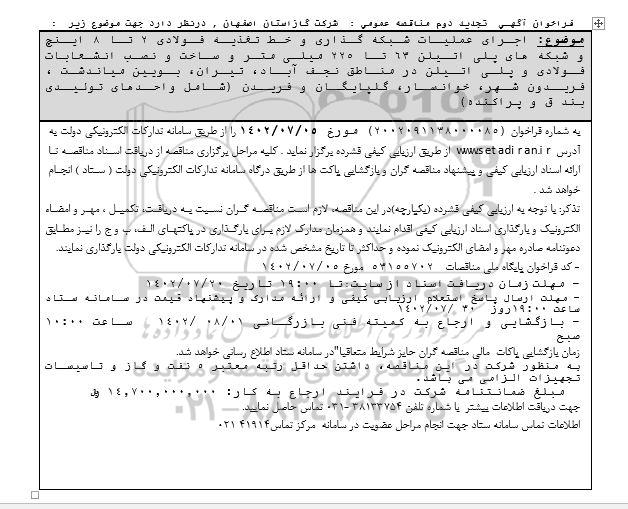 فراخوان آگهی تجدید دوم مناقصه عمومی : شرکت گازاستان اصفهان , درنظر دارد جهت موضوع زیر :
موضوع: اجرای عملیات شبکه گذاری و خط تغذیه فولادی ۲ تا ۸ اینچ
و شبکه های پلی اتیلن ۶۳ تا ۲۲۵ میلی متر و ساخت و نصب انشعابات
فولادی و پلی اتیلن در مناطق نجف آباد، تیران، بویین میاندشت ،
فریدون شهر، خوانسار، گلپایگان و فریدن (شامل واحدهای تولیدی
بند ق و پراکنده)
به شماره فراخوان (۲۰۰۲۰۹۱۱۳۸۰۰۰۰۸۵) مورخ ۱۴۰۲/۰۷/۰۵ را از طریق سامانه تدارکات الکترونیکی دولت به
آدرس www.setadiran.ir از طریق ارزیابی کیفی فشرده برگزار نماید . کلیه مراحل برگزاری مناقصه از دریافت اسناد مناقصه تا
ارائه اسناد ارزیابی کیفی و پیشنهاد مناقصه گران و بازگشایی پاکت ها از طریق درگاه سامانه تدارکات الکترونیکی دولت ( ستاد ) انجام
خواهد شد .
تذکر: با توجه به ارزیابی کیفی فشرده (یکپارچه)در این مناقصه، لازم است مناقصه گران نسبت به دریافت، تکمیل ، مهر و امضاء
الکترونیک و بارگذاری اسناد ارزیابی کیفی اقدام نمایند و همزمان مدارک لازم برای بارگذاری در پاکتهای الف، ب و ج را نیز مطابق
دعوتنامه صادره مهر و امضای الکترونیک نموده و حداکثر تا تاریخ مشخص شده در سامانه تدارکات الکترونیکی دولت بارگذاری نمایند.
- کد فراخوان پایگاه ملی مناقصات ۵۳۱۵۵۷۰۲ مورخ ۱۴۰۲/۰۷/۰۵
- مهلت زمان دریافت اسناد از سایت:تا ۱۹:۰۰ تاریخ ۱۴۰۲/۰۷/۲۰
- مهلت ارسال پاسخ استعلام ارزیابی کیفی و ارائه مدارک و پیشنهاد قیمت در سامانه ستاد
ساعت ۱۹:۰۰ روز ۳۰ /۱۴۰۲/۰۷
- بازگشایی و ارجاع به کمیته فنی بازرگانی ۰۸/۰۱ /۱۴۰۲ ساعت ۱۰:۰۰
صبح
زمان بازگشایی پاکات مالی مناقصه گران حایز شرایط متعاقبا"در سامانه ستاد اطلاع رسانی خواهد شد.
به منظور شرکت در این مناقصه، داشتن حداقل رتبه معتبر ۵ نفت و گاز و تاسیسات
تجهیزات الزامی می باشد.
مبلغ ضمانتنامه شرکت در فرایند ارجاع به کار: ۱۴,۷۰۰,۰۰۰,۰۰۰
جهت دریافت اطلاعات بیشتر با شماره تلفن ۳۸۱۳۳۷۵۴-۰۳۱ تماس حاصل نمایید.
اطلاعات تماس سامانه ستاد جهت انجام مراحل عضویت در سامانه مرکز تماس۴۱۹۱۴ ۰۲۱